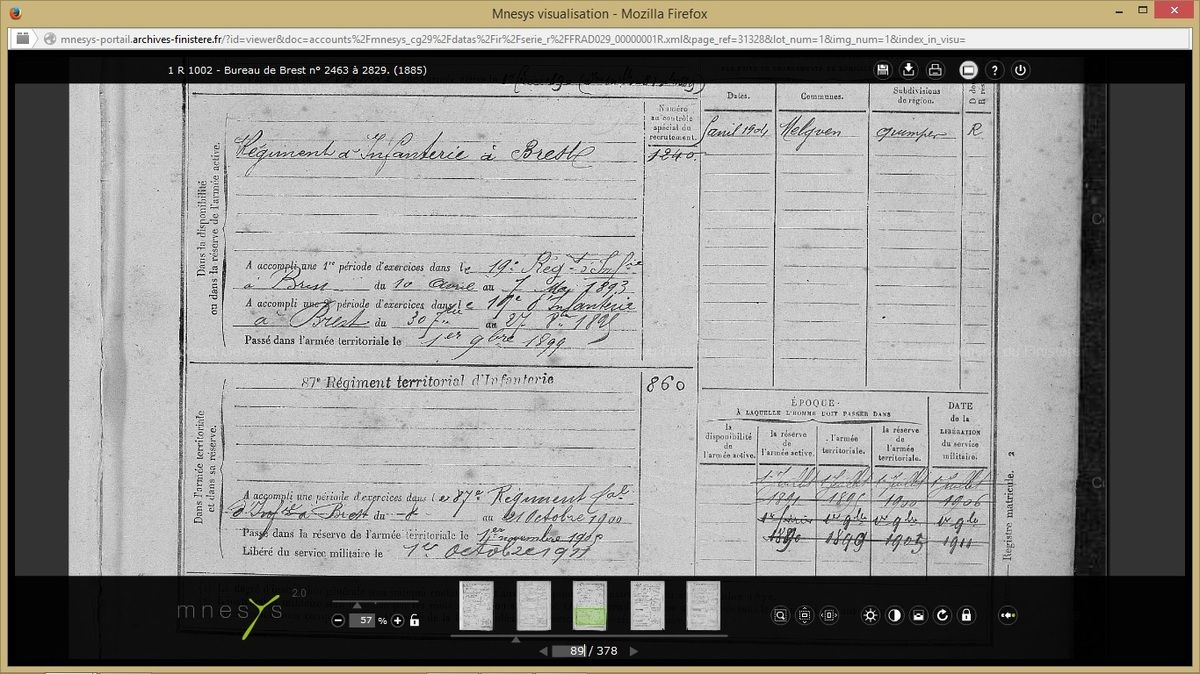 Mnesys visualisation - Mozilla Firefox
mnesys-portail.archives-finistere.fr/?id=viewer&doc=accounts%2Fmnesys_cg29%2Fdatas%2Fir%2Fserie_r%2FFRAD029_00000001R.xml&page_ref=31328&lot_num=1&img_num=1&index_in_visu=
1 R 1002 - Bureau de Brest n° 2463 à 2829. (1885)
Dans la disponibilité
ou dans la réserve de l'armée active.
Régiment d'Infanterie à Brest
Numéro
au contrôle
spécial du
recrutement.
1240
A accompli une 1re période d'exercices dans le 19e Rég.t d'Inf.ie
à Brest du 10 Avril au 7 Mai 1893
A accompli une 2e période d'exercices dans le 19e d'Infanterie
à Brest du 30 au 27
Passé dans l'armée territoriale le 1er 9bre 1899
Dans l'armée territoriale
et dans sa réserve.
87e Régiment territorial d'Infanterie
860
A accompli une période d'exercices dans le 87e Régiment
à Brest du 8 au 21 Octobre 1900
Passé dans la réserve de l'armée territoriale le 1er novembre 1905
Libéré du service militaire le 1er octobre 1911
Dates.
Communes.
Subdivisions
de région.
avril 1904
Melgven
quimper
R
ÉPOQUE
À LAQUELLE L'HOMME DOIT PASSER DANS
DATE
de la
LIBÉRATION
du service
militaire.
la
disponibilité
de
l'armée active.
la réserve
de
l'armée active.
l'armée
territoriale.
la réserve
de
l'armée
territoriale.
1 Juillet
1 Juillet
1 Juillet
1 Juillet
1906
1er 9bre
1er 9bre
1er 9bre
1890
1899
1905
1911
Registre matricule. 2
mnesys 2.0
57 %
89 / 378